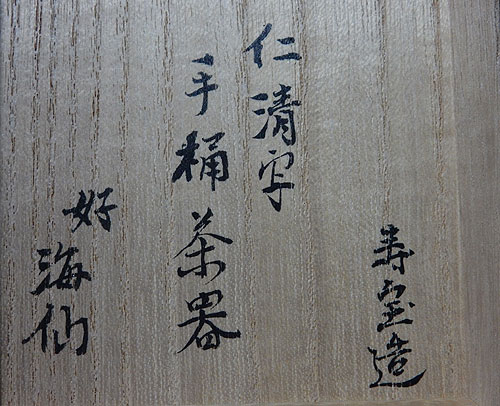 寿宝造
仁清写
手桶茶器
好
海仙